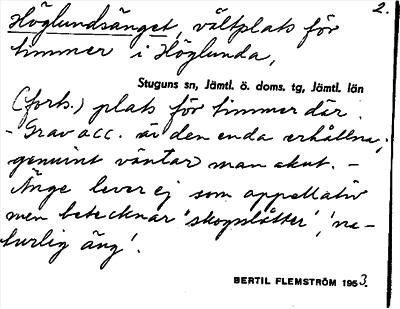 2.
Höglundsänget, vältplats för
timmer i Höglunda,
Stuguns sn, Jämtl. ö. doms. tg, Jämtl. län
(forts.) plats för timmer där.
- Grav acc. är den enda erhållna;
genuint väntar man akut. -
Änge lever ej som appellativ
men betecknar 'skogsslåtter', 'na-
turlig äng'.
BERTIL FLEMSTRÖM 1953.